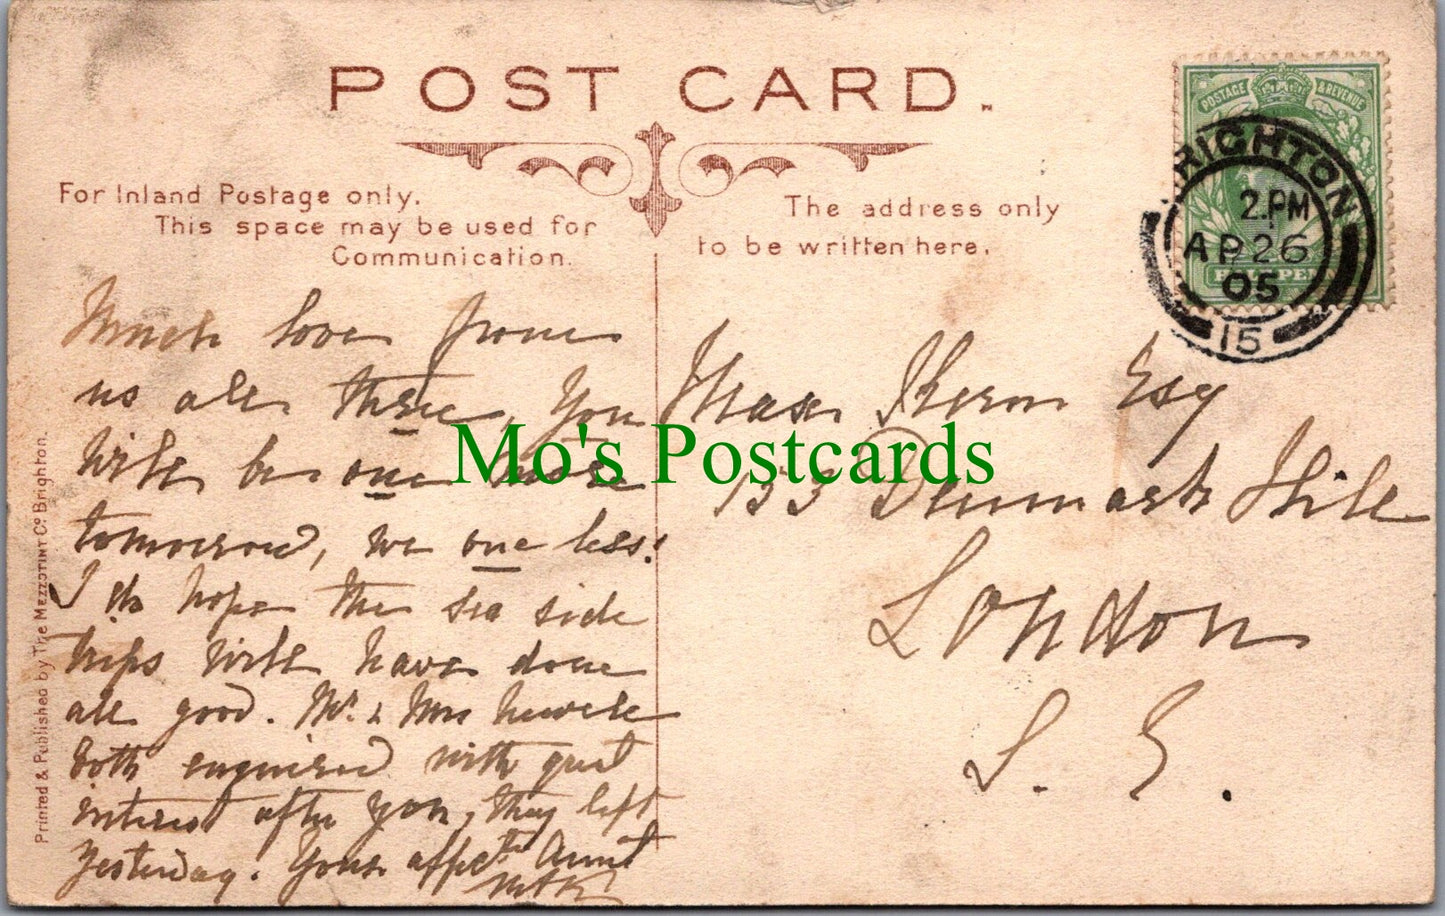 POST CARD.
For Inland Postage only.
This space may be used for
Communication.
The address only
to be written here.
POSTAGE & REVENUE
HALFPENNY
BRIGHTON
2. PM
AP 26
05
15
Much love from
us all three, You
will be one more
tomorrow, we one less!
I do hope the sea side
trips will have done
all good. Mr. & Mrs
both enquired with great
interest after you, they left
yesterday. Yours affectte Aunt
Esq
133 Denmark Hill
London
S. E.
Mo's Postcards
Printed & Published by The MEZZOTINT Co Brighton.